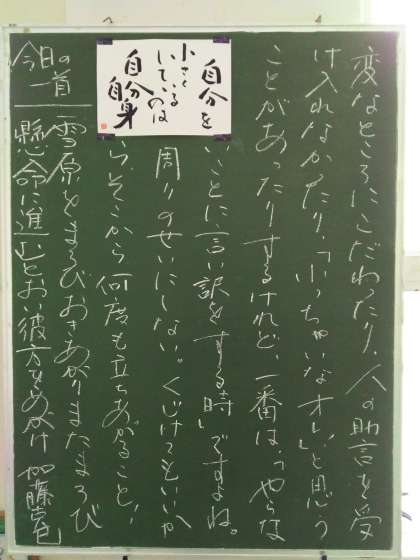 自分を
小さく
しているのは
自分
自身
変なところにこだわったり、人の助言を受
け入れなかったり、「小っちゃいなオレ」と思う
ことがあったりするけれど、一番は、「やらな
いことに言い訳をする時」ですよね。
周りのせいにしない。くじけてもいいか
ら、そこから何度も立ちあがること!
今日の
一首
雪原をまろびおきあがりまたまろび
懸命に進むとおい彼方をめがけ 加藤克巳